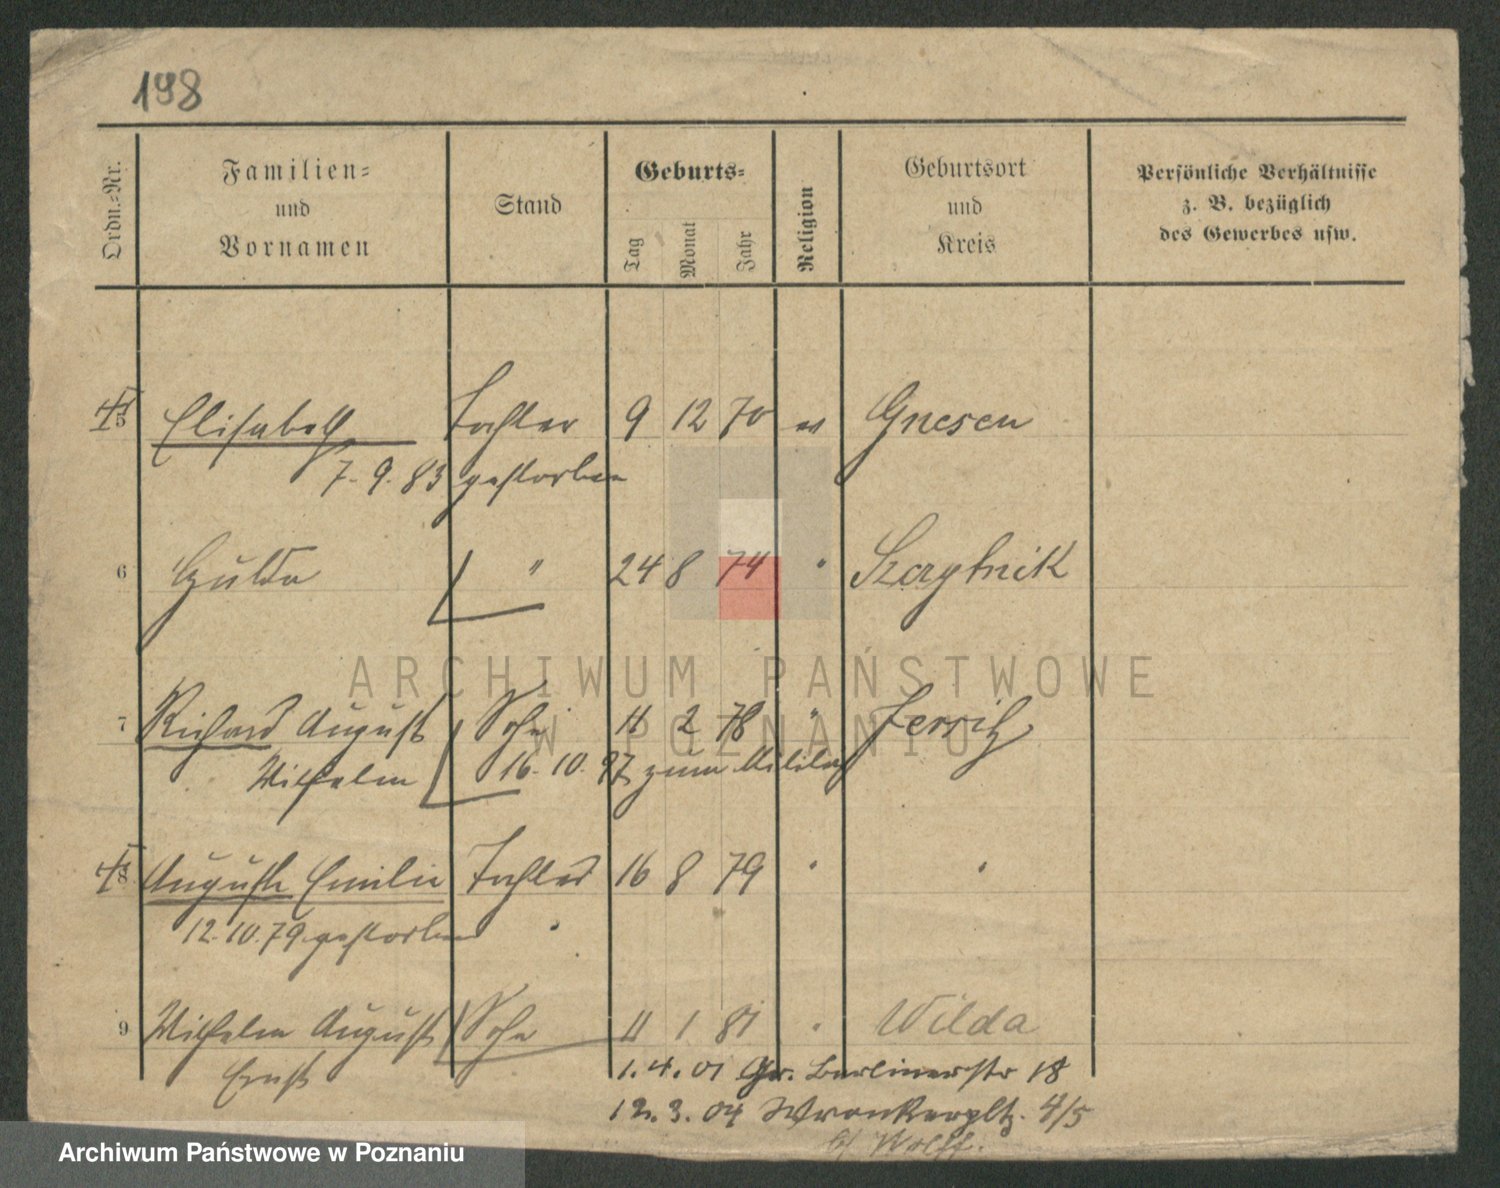 198
Ordn.-Nr.
Familien-
und
Vornamen
Stand
Geburts-
Tag
Monat
Jahr
Religion
Geburtsort
und
Kreis
Persönliche Verhältnisse
z. B. bezüglich
des Gewerbes usw.
5 Elisabeth Tochter 9 12 70 ev Gnesen
7. 9. 83 gestorben
6 Hulda " 24 8 74 " Szczytnik
7 Richard August Sohn 11 2 78 " Jersitz
Wilhelm 16. 10. 97 zum Militär
8 Auguste Emilie Tochter 16 8 79 " "
12. 10. 79 gestorben
9 Wilhelm August Sohn 11 1 81 " Wilda
Ernst 1. 4. 01 Gr. Berlinerstr 18
12. 3. 04 Wronkerpltz. 4/5
b/ Wolff.
ARCHIWUM PAŃSTWOWE
W POZNANIU
Archiwum Państwowe w Poznaniu